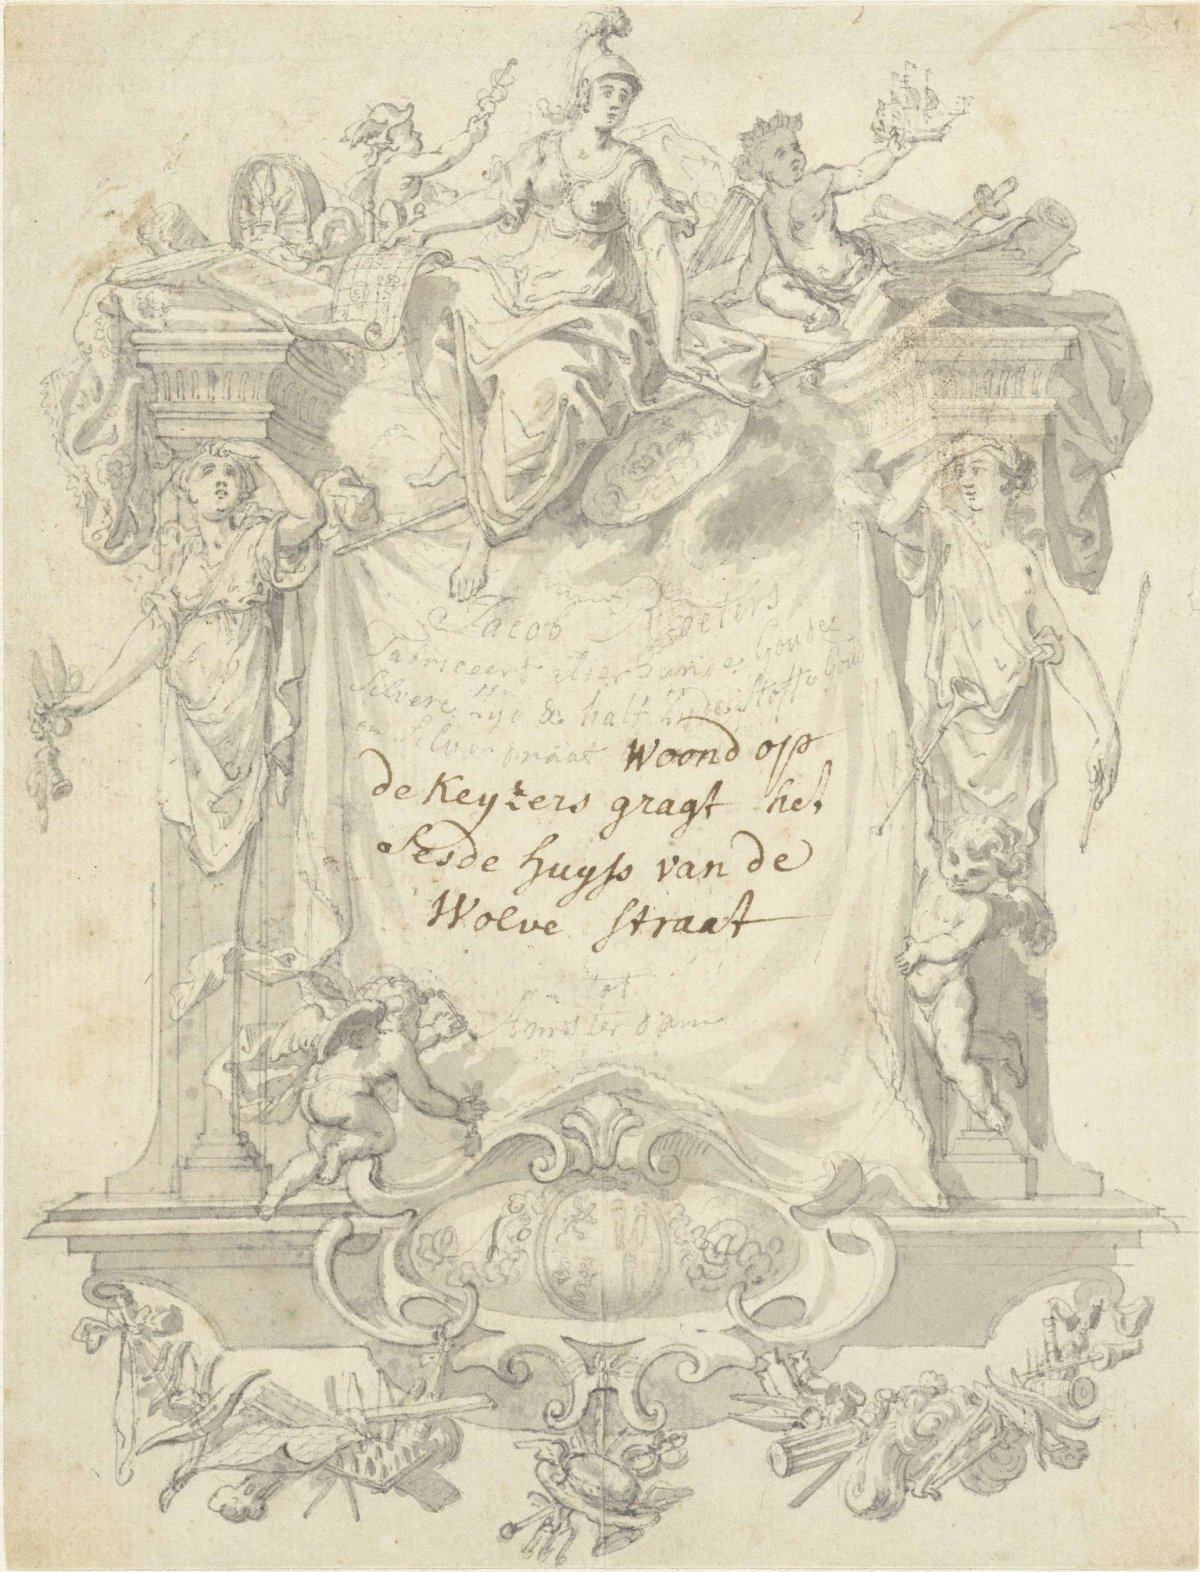 Jacob Roeters
Fabriceert allerhande Goude
Silvere Zyd & half Zyde Stoffe Goud
en Silver draat Woond op
de Keyzers gragt het
Sesde huyss van de
Wolve straat
tot
Amsterdam